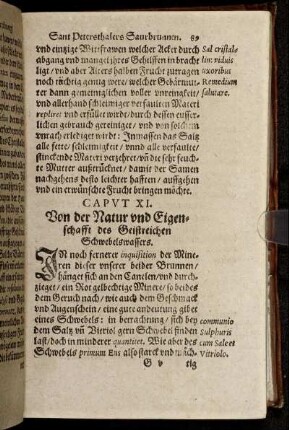 Sant Petersthalers Saurbrunnen. 89
vnd eintzige Witfrawen welcher Acker durch
abgang vnd mangel jhres Gehülffen in bracht
ligt / vnd aber Alters halben Frucht zutragen
noch tüchtig genug were / welcher Gebärmut-
ter dann gemeiniglichen voller vnreinigkeit /
vnd allerhand schleimiger verfaulten Materi
replirt vnd erfüllet wird: durch dessen eusser-
lichen gebrauch gereiniget / vnd von solchem
vnrath erlediget wirdt: Inmassen das Saltz
alle fette / schleimigkeit / vnnd alle verfaulte /
stinckende Materi verzehret / vñ die sehr feuch-
te Mutter außtrücknet / damit der Samen
nachgehens desto leichter hafften / auffgehen
vnd ein erwünschte Frucht bringen möchte.
Sal cristal-
lin: viduis
uxoribus
Remedium
salutare.
CAPVT XI.
Von der Natur vnd Eigen-
schafft des Geistreichen
Schwebelwassers.
IN noch fernerer inquisition der Mine-
ren dieser vnserer beider Brunnen /
hänget sich an den Canelen / vnd durch-
zieget / ein Rot gelbechtige Minere / so beides
dem Geruch nach / wie auch dem Geschmack
vnd Augenschein / eine gute andeutung gibet
eines Schwebels: in betrachtung / sich bey
dem Saltz vñ Vitriol gern Schwebel finden
last / doch in minderer quantitet. Wie aber des
Schwebels primum Ens also starck vnd mäch-
communio
Sulphuris
cum Sale et
Vitriolo.
G v tig